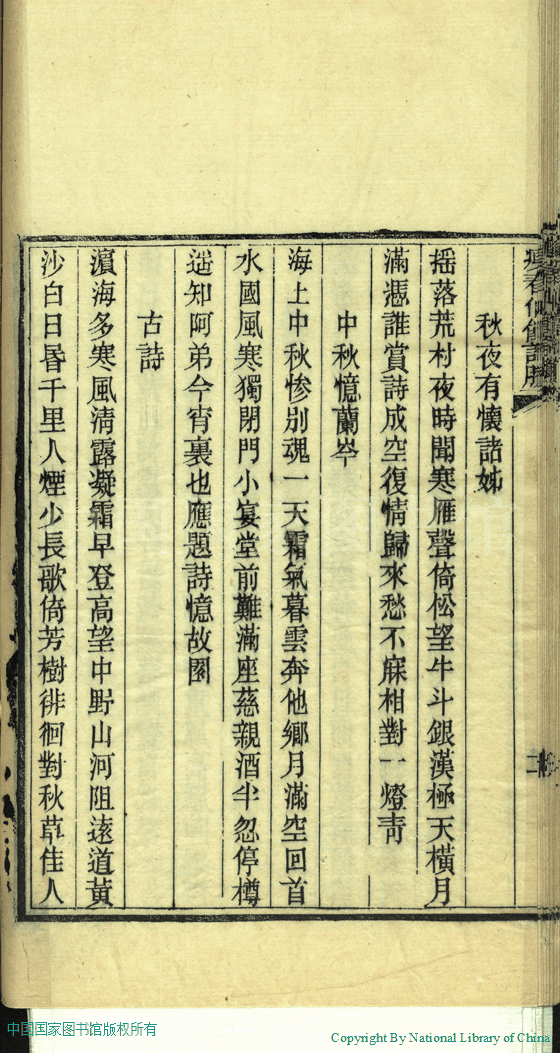 秋夜有懷諸姊
搖落荒村夜時聞寒雁聲倚松望牛斗銀漢極天橫月
滿憑誰賞詩成空復情歸來愁不寐相對一燈靑
中秋憶蘭岑
海上中秋慘別魂一天霜氣暮雲奔他鄉月滿空回首
水國風寒獨閉門小宴堂前難滿座慈親酒半忽停樽
遥知阿弟今宵裏也應題詩憶故園
古詩
濵海多寒風淸露凝霜早登高望中野山河阻遠道黃
沙白日昬千里人煙少長歌倚芳樹徘徊對秋草佳人
二
中国国家图书馆版权所有
Copyright By National Library of China